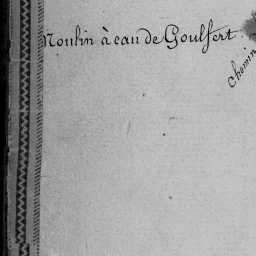 Moulin à eau de Goulfert
chemin